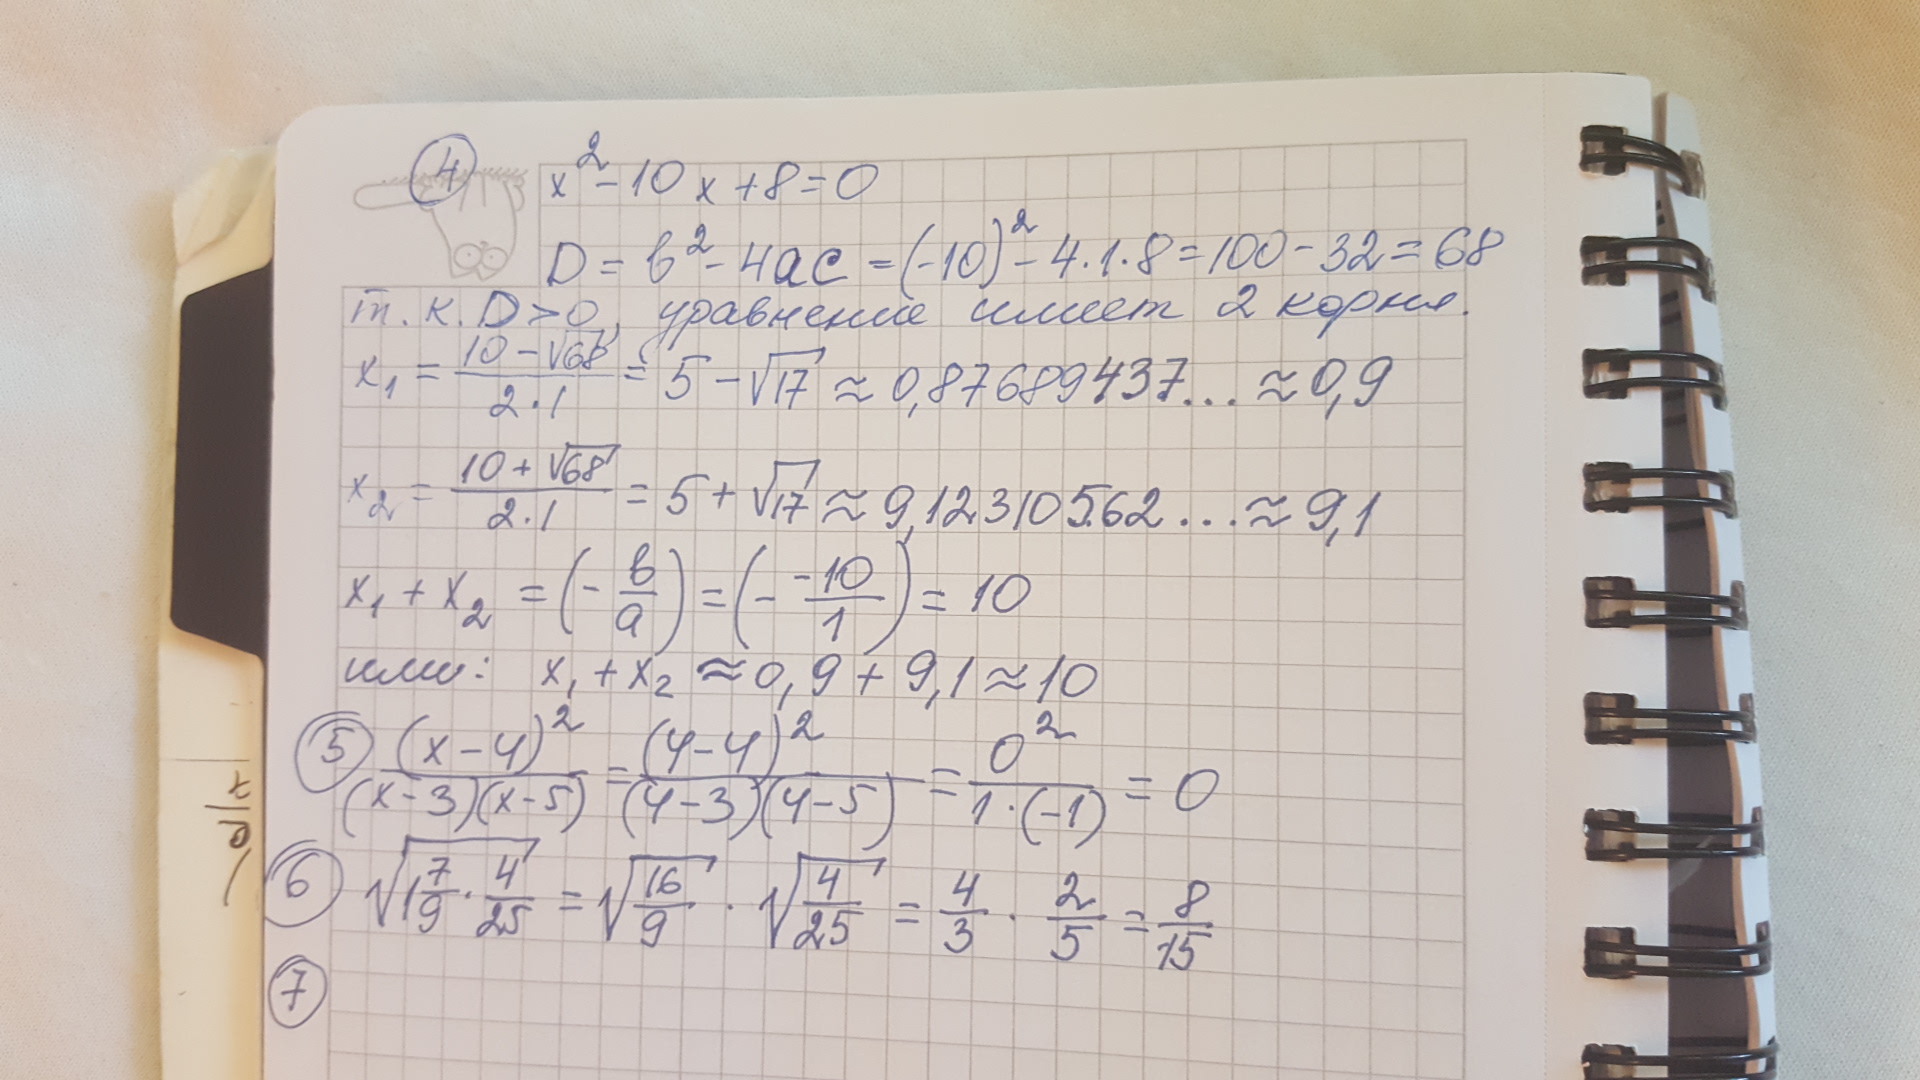 4 x² - 10x + 8 = 0
D = b² - 4ac = (-10)² - 4·1·8 = 100 - 32 = 68
т.к. D > 0, уравнение имеет 2 корня.
x₁ = (10 - √68)/(2·1) = 5 - √17 ≈ 0,87689437... ≈ 0,9
x₂ = (10 + √68)/(2·1) = 5 + √17 ≈ 9,123105562... ≈ 9,1
x₁ + x₂ = (- b/a) = (- -10/1) = 10
или: x₁ + x₂ ≈ 0,9 + 9,1 ≈ 10
5 (x-4)²/((x-3)(x-5)) = (4-4)²/((4-3)(4-5)) = 0²/(1·(-1)) = 0
6 √(1 7/9 · 4/25) = √(16/9) · √(4/25) = 4/3 · 2/5 = 8/15
7